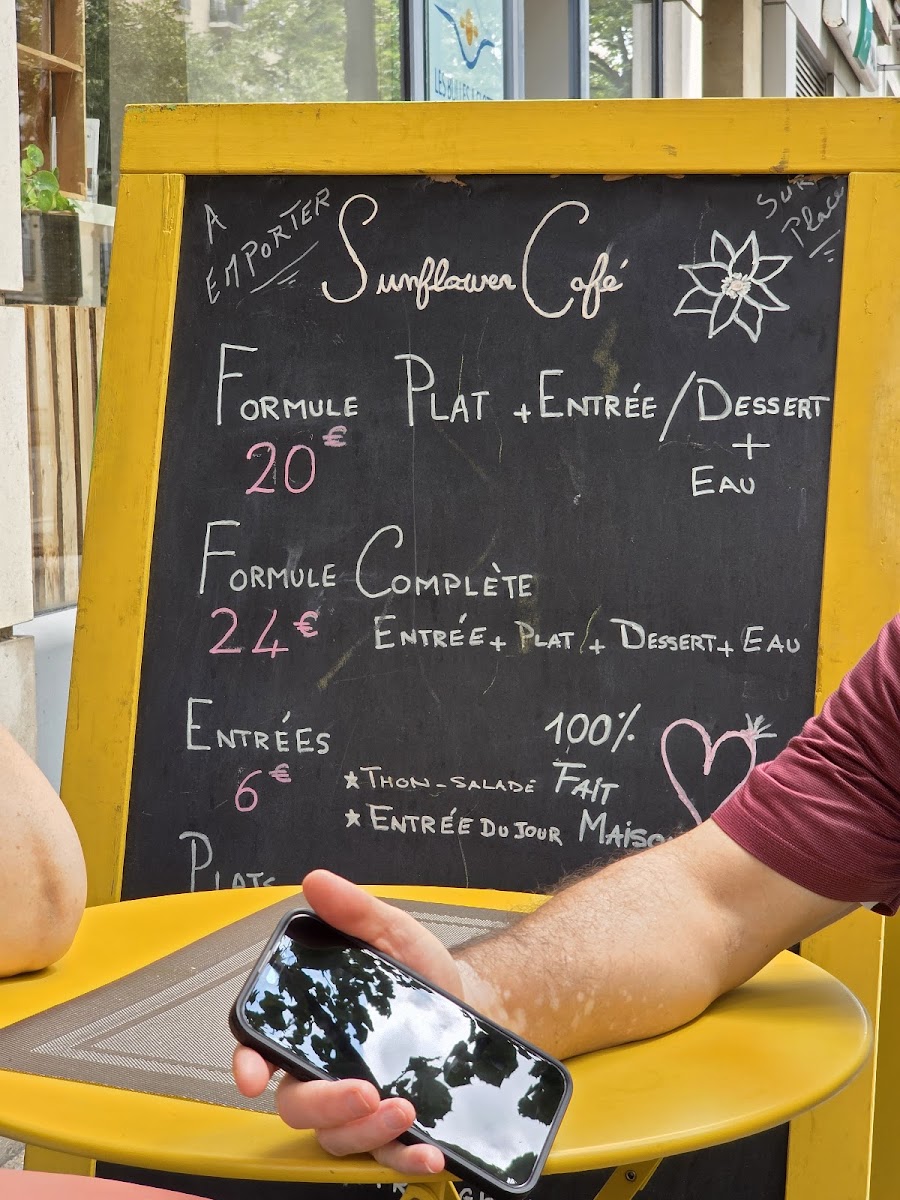 A EMPORTER
Sunflower Café
SUR Place
FORMULE PLAT + ENTRÉE / DESSERT
20€
+
EAU
FORMULE COMPLÈTE
24€ ENTRÉE + PLAT + DESSERT + EAU
ENTRÉES
6€
100%
FAIT
★ THON-SALADE
★ ENTRÉE DU JOUR
PLATS